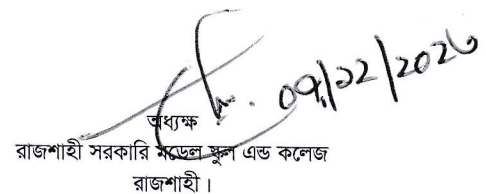 ০৭/১২/২০২৩
অধ্যক্ষ
রাজশাহী সরকারি মডেল স্কুল এন্ড কলেজ
রাজশাহী।